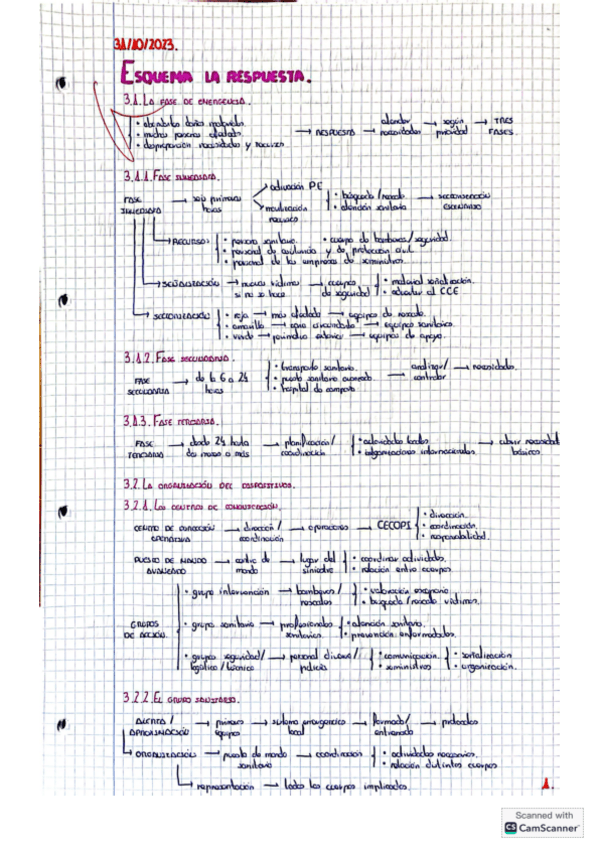 31/10/2023.
ESQUEMA LA RESPUESTA.
3.1. LA FASE DE EMERGENCIA.
• abundantes daños materiales
• muchas personas afectadas
• desproporción necesidades y recursos
→ RESPUESTA → atender necesidades → según prioridad → TRES FASES.
3.1.1. FASE INMEDIATA.
FASE INMEDIATA → seis primeras horas
activación PE
movilización recursos
• búsqueda/rescate
• atención sanitaria
→ sectorización escenario
→ RECURSOS
• personal sanitario.
• cuerpo de bomberos/seguridad.
• personal de ambulancia y de protección civil.
• personal de las empresas de suministros.
→ SEÑALIZACIÓN → nuevas víctimas si no se hace → cuerpos de seguridad
• material señalización.
• advertir al CCE
→ SECTORIZACIÓN
• roja → más afectada → equipos de rescate.
• amarilla → zona circundante → equipos sanitarios.
• verde → perímetro exterior → equipos de apoyo.
3.1.2. FASE SECUNDARIA.
FASE SECUNDARIA → de 6 a 24 horas
• transporte sanitario.
• puesto sanitario avanzado.
• hospital de campaña
→ analizar/ controlar → necesidades.
3.1.3. FASE TERCIARIA.
FASE TERCIARIA → desde 24 hasta do meses o más → planificación/ coordinación
• autoridades locales
• organizaciones internacionales
→ cubrir necesidad básicas
3.2. LA ORGANIZACIÓN DEL DISPOSITIVO.
3.2.1. LOS CENTROS DE COORDINACIÓN.
CENTRO DE COORDINACIÓN OPERATIVA → dirección/ coordinación → operaciones → CECOPI
• dirección.
• coordinación.
• responsabilidad.
PUESTO DE MANDO AVANZADO → centro de mando → lugar del siniestro
• coordinar actividades.
• relación entre cuerpos.
GRUPOS DE ACCIÓN.
• grupo intervención → bomberos/ rescates
• valoración escenario
• búsqueda/rescate víctimas.
• grupo sanitario → profesionales sanitarios
• atención sanitaria.
• prevención enfermedades.
• grupos seguridad/ logístico/técnico → personal diverso/ policía
• comunicación.
• suministros
• señalización
• organización.
3.2.2. EL GRUPO SANITARIO.
ALERTA/ APROXIMACIÓN → primeros equipos → sistema emergencias local → formado/ entrenado → protocolos
→ ORGANIZACIÓN → puesto de mando sanitario → coordinación
• actividades necesarias.
• relación distintos cuerpos
→ representación → todos los cuerpos implicados.
1.
Scanned with
CS CamScanner